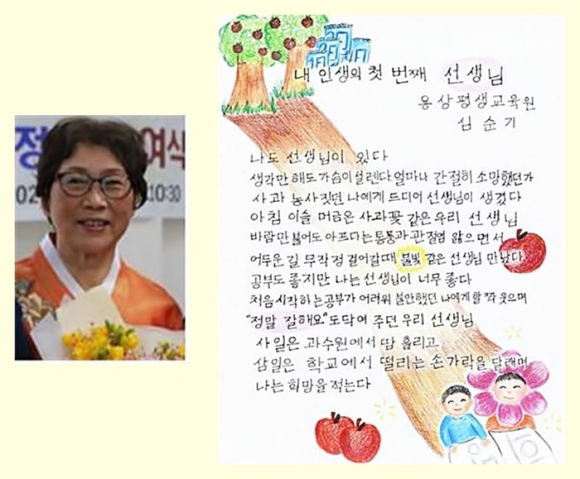 정
여식
02
10:30
내 인생의 첫 번째 선생님
용상평생교육원
심순기
나도 선생님이 있다
생각만 해도 가슴이 설렌다 얼마나 간절히 소망했던가
사과 농사짓던 나에게 드디어 선생님이 생겼다
아침 이슬 머금은 사과꽃 같은 우리 선생님
바람만 불어도 아프다는 통풍과 관절염 앓으면서
어두운 길 무작정 걸어갈때 불빛 같은 선생님 만났다
공부도 좋지만 나는 선생님이 너무 좋다
처음 시작하는 공부가 어려워 불안했던 나에게 활짝 웃으며
"정말 잘해요" 또닥여 주던 우리 선생님
사일은 과수원에서 땀 흘리고
삼일은 학교에서 떨리는 손가락을 달래며
나는 희망을 적는다